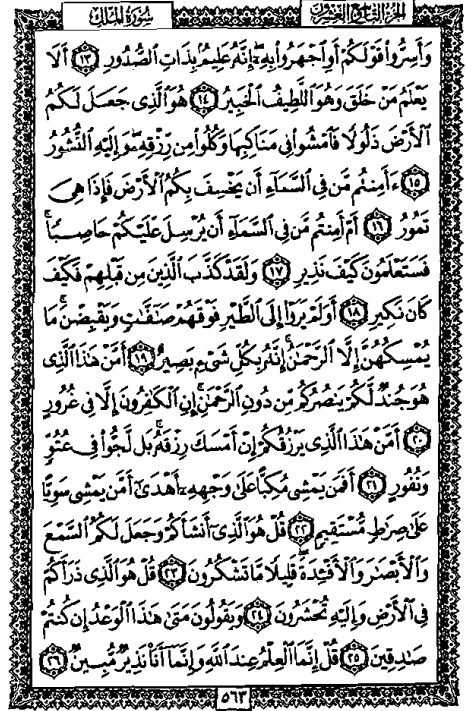 سُورَةُ المُلْكِ الجزء التاسع والعشرون
وَأَسِرُّوا۟ قَوْلَكُمْ أَوِ ٱجْهَرُوا۟ بِهِۦٓ إِنَّهُۥ عَلِيمٌۢ بِذَاتِ ٱلصُّدُورِ ١٣ أَلَا
يَعْلَمُ مَنْ خَلَقَ وَهُوَ ٱللَّطِيفُ ٱلْخَبِيرُ ١٤ هُوَ ٱلَّذِى جَعَلَ لَكُمُ
ٱلْأَرْضَ ذَلُولًا فَٱمْشُوا۟ فِى مَنَاكِبِهَا وَكُلُوا۟ مِن رِّزْقِهِۦ وَإِلَيْهِ ٱلنُّشُورُ
١٥ ءَأَمِنتُم مَّن فِى ٱلسَّمَآءِ أَن يَخْسِفَ بِكُمُ ٱلْأَرْضَ فَإِذَا هِىَ
تَمُورُ ١٦ أَمْ أَمِنتُم مَّن فِى ٱلسَّمَآءِ أَن يُرْسِلَ عَلَيْكُمْ حَاصِبًا
فَسَتَعْلَمُونَ كَيْفَ نَذِيرِ ١٧ وَلَقَدْ كَذَّبَ ٱلَّذِينَ مِن قَبْلِهِمْ فَكَيْفَ
كَانَ نَكِيرِ ١٨ أَوَلَمْ يَرَوْا۟ إِلَى ٱلطَّيْرِ فَوْقَهُمْ صَٰٓفَّٰتٍ وَيَقْبِضْنَ مَا
يُمْسِكُهُنَّ إِلَّا ٱلرَّحْمَٰنُ إِنَّهُۥ بِكُلِّ شَىْءٍۭ بَصِيرٌ ١٩ أَمَّنْ هَٰذَا ٱلَّذِى
هُوَ جُندٌ لَّكُمْ يَنصُرُكُم مِّن دُونِ ٱلرَّحْمَٰنِ إِنِ ٱلْكَٰفِرُونَ إِلَّا فِى غُرُورٍ
٢٠ أَمَّنْ هَٰذَا ٱلَّذِى يَرْزُقُكُمْ إِنْ أَمْسَكَ رِزْقَهُۥ بَل لَّجُّوا۟ فِى عُتُوٍّ
وَنُفُورٍ ٢١ أَفَمَن يَمْشِى مُكِبًّا عَلَىٰ وَجْهِهِۦٓ أَهْدَىٰٓ أَمَّن يَمْشِى سَوِيًّا
عَلَىٰ صِرَٰطٍ مُّسْتَقِيمٍ ٢٢ قُلْ هُوَ ٱلَّذِىٓ أَنشَأَكُمْ وَجَعَلَ لَكُمُ ٱلسَّمْعَ
وَٱلْأَبْصَٰرَ وَٱلْأَفْـِٔدَةَ قَلِيلًا مَّا تَشْكُرُونَ ٢٣ قُلْ هُوَ ٱلَّذِى ذَرَأَكُمْ
فِى ٱلْأَرْضِ وَإِلَيْهِ تُحْشَرُونَ ٢٤ وَيَقُولُونَ مَتَىٰ هَٰذَا ٱلْوَعْدُ إِن كُنتُمْ
صَٰدِقِينَ ٢٥ قُلْ إِنَّمَا ٱلْعِلْمُ عِندَ ٱللَّهِ وَإِنَّمَآ أَنَا۠ نَذِيرٌ مُّبِينٌ ٢٦
٥٦٣